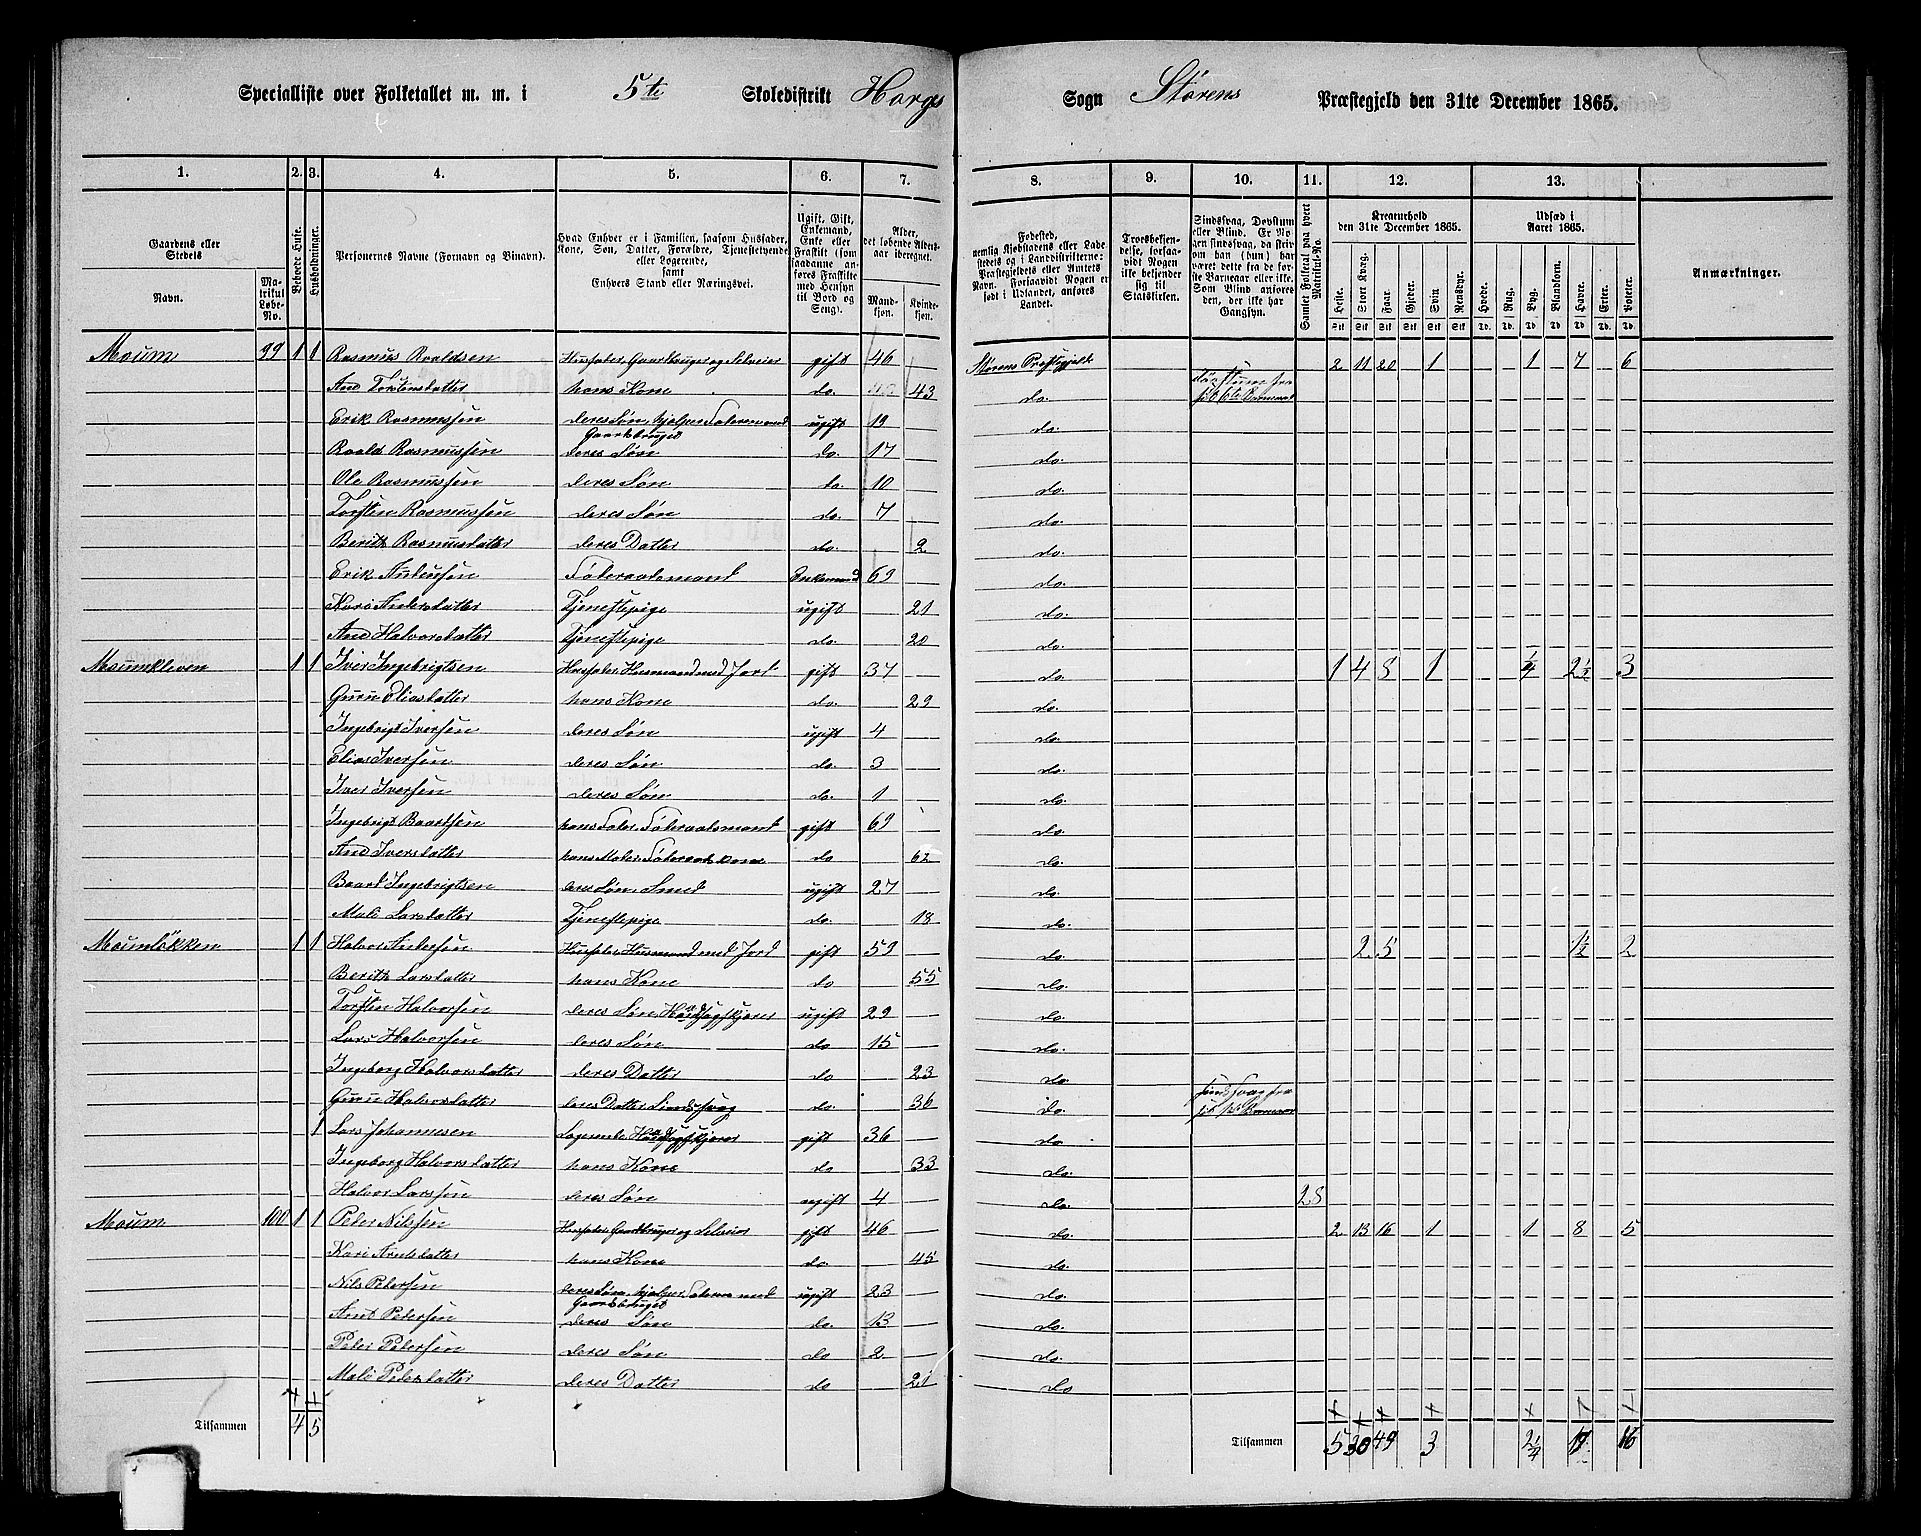 Specialliste over Folketallet m. m. i 5te Skoledistrikt Horgs Sogn Størens Præstegjeld den 31te December 1865.
1. 2. 3. 4. 5. 6. 7. 8. 9. 10. 11. 12. 13.
Gaardens eller Stedets Navn. Matrikul Løbe-No. Beboede Huse. Husholdninger. Personernes Navne (Fornavn og Binavn). Hvad Enhver er i Familien, saasom Husfader, Kone, Søn, Datter, Forældre, Tjenestetyende eller Logerende, samt Enhvers Stand eller Næringsvei. Ugift, Gift, Enkemand, Enke eller Fraskilt (som saadanne anføres Fraskilte med Hensyn til Bord og Seng). Alder, det løbende Aldersaar iberegnet. Mandkjøn. Kvindekjøn.
Fødested, nemlig Kjøbstadens eller Ladestedets og i Landdistrikterne: Præstegjeldets eller Amtets Navn. Forsaavidt Nogen er født i Udlandet, anføres Landet. Troesbekjendelse, forsaavidt Nogen ikke bekjender sig til Statskirken. Sindssvag, Døvstum eller Blind. Er Nogen sindssvag, da skrives om han (hun) har været dette fra de første Barneaar eller ikke. Som Blind anføres den, der ikke har Gangsyn. Gamlet Folketal paa hvert Matrikul-No. Kreaturhold den 31te December 1865. Heste. Stort Kvæg. Faar. Gjeder. Svin. Rensdyr. Udsæd i Aaret 1865. Hvede. Rug. Byg. Blandkorn. Havre. Erter. Poteter. Anmærkninger.
Stk Stk Stk Stk Stk Stk Td. Td. Td. Td. Td. Td. Td.
Moum 99 1 1 Rasmus Roaldsen Husfader, Gaardbruger og Selveier gift 46 Størens Præstegjeld 2 11 20 1 1 7 6
And Torstensdatter hans Kone do. 43 do. døvstum fra
Erik Rasmussen deres Søn, hjelper Faderen med Gaardsbruget ugift 19 do.
Roald Rasmussen deres Søn do. 17 do.
Ole Rasmussen deres Søn do. 10 do.
Torsten Rasmussen deres Søn do. 7 do.
Berith Rasmusdatter deres Datter do. 2 do.
Erik Andersen Føderaadsmand Enkemand 69 do.
Kari Andersdatter Tjenestepige ugift 21 do.
And Halvorsdatter Tjenestepige do. 20 do.
Moumkleven 1 1 Iver Ingebrigtsen Husfader, Husmand med Jord gift 37 do. 1 4 8 1 1/4 2 1/2 3
Guru Eliasdatter hans Kone do. 29 do.
Ingebrigt Iversen deres Søn ugift 4 do.
Elias Iversen deres Søn do. 3 do.
Iver Iversen deres Søn do. 1 do.
Ingebrigt Baardsen hans Fader, Føderaadsmand gift 69 do.
And Iversdatter hans Moder, Føderaadskone do 62 do.
Baard Ingebrigtsen deres Søn, Smed ugift 27 do.
Mali Larsdatter Tjenestepige do. 18 do.
Moumløkken 1 1 Halvor Andersen Husfader, Husmand med Jord gift 59 do. 2 5 1 1/2 2
Berith Larsdatter hans Kone do 55 do.
Torsten Halvorsen deres Søn ugift 29 do.
Lars Halvorsen deres Søn do 15 do.
Ingeborg Halvorsdatter deres Datter do 23 do.
Guru Halvorsdatter deres Datter Sindssvag do 36 do. sindssvag fra
1 Lars Johannesen Logerende gift 36 do.
Ingeborg Halvorsdatter hans Kone do 33 do.
Halvor Larssen deres Søn ugift 4 do. 28
Moum 100 1 1 Peter Nilssen Husfader Gaardbruger og Selveier gift 46 do. 2 13 16 1 1 8 5
Kari Arntsdatter hans Kone do. 45 do.
Nils Petersen deres Søn, hjelper Faderen med Gaardsbruget ugift 23 do.
Arnt Petersen deres Søn do. 13 do.
Peter Petersen deres Søn do 2 do.
Mali Petersdatter deres Datter do 21 do
Tilsammen 4 5 Tilsammen 5 30 49 3 2 1/4 16